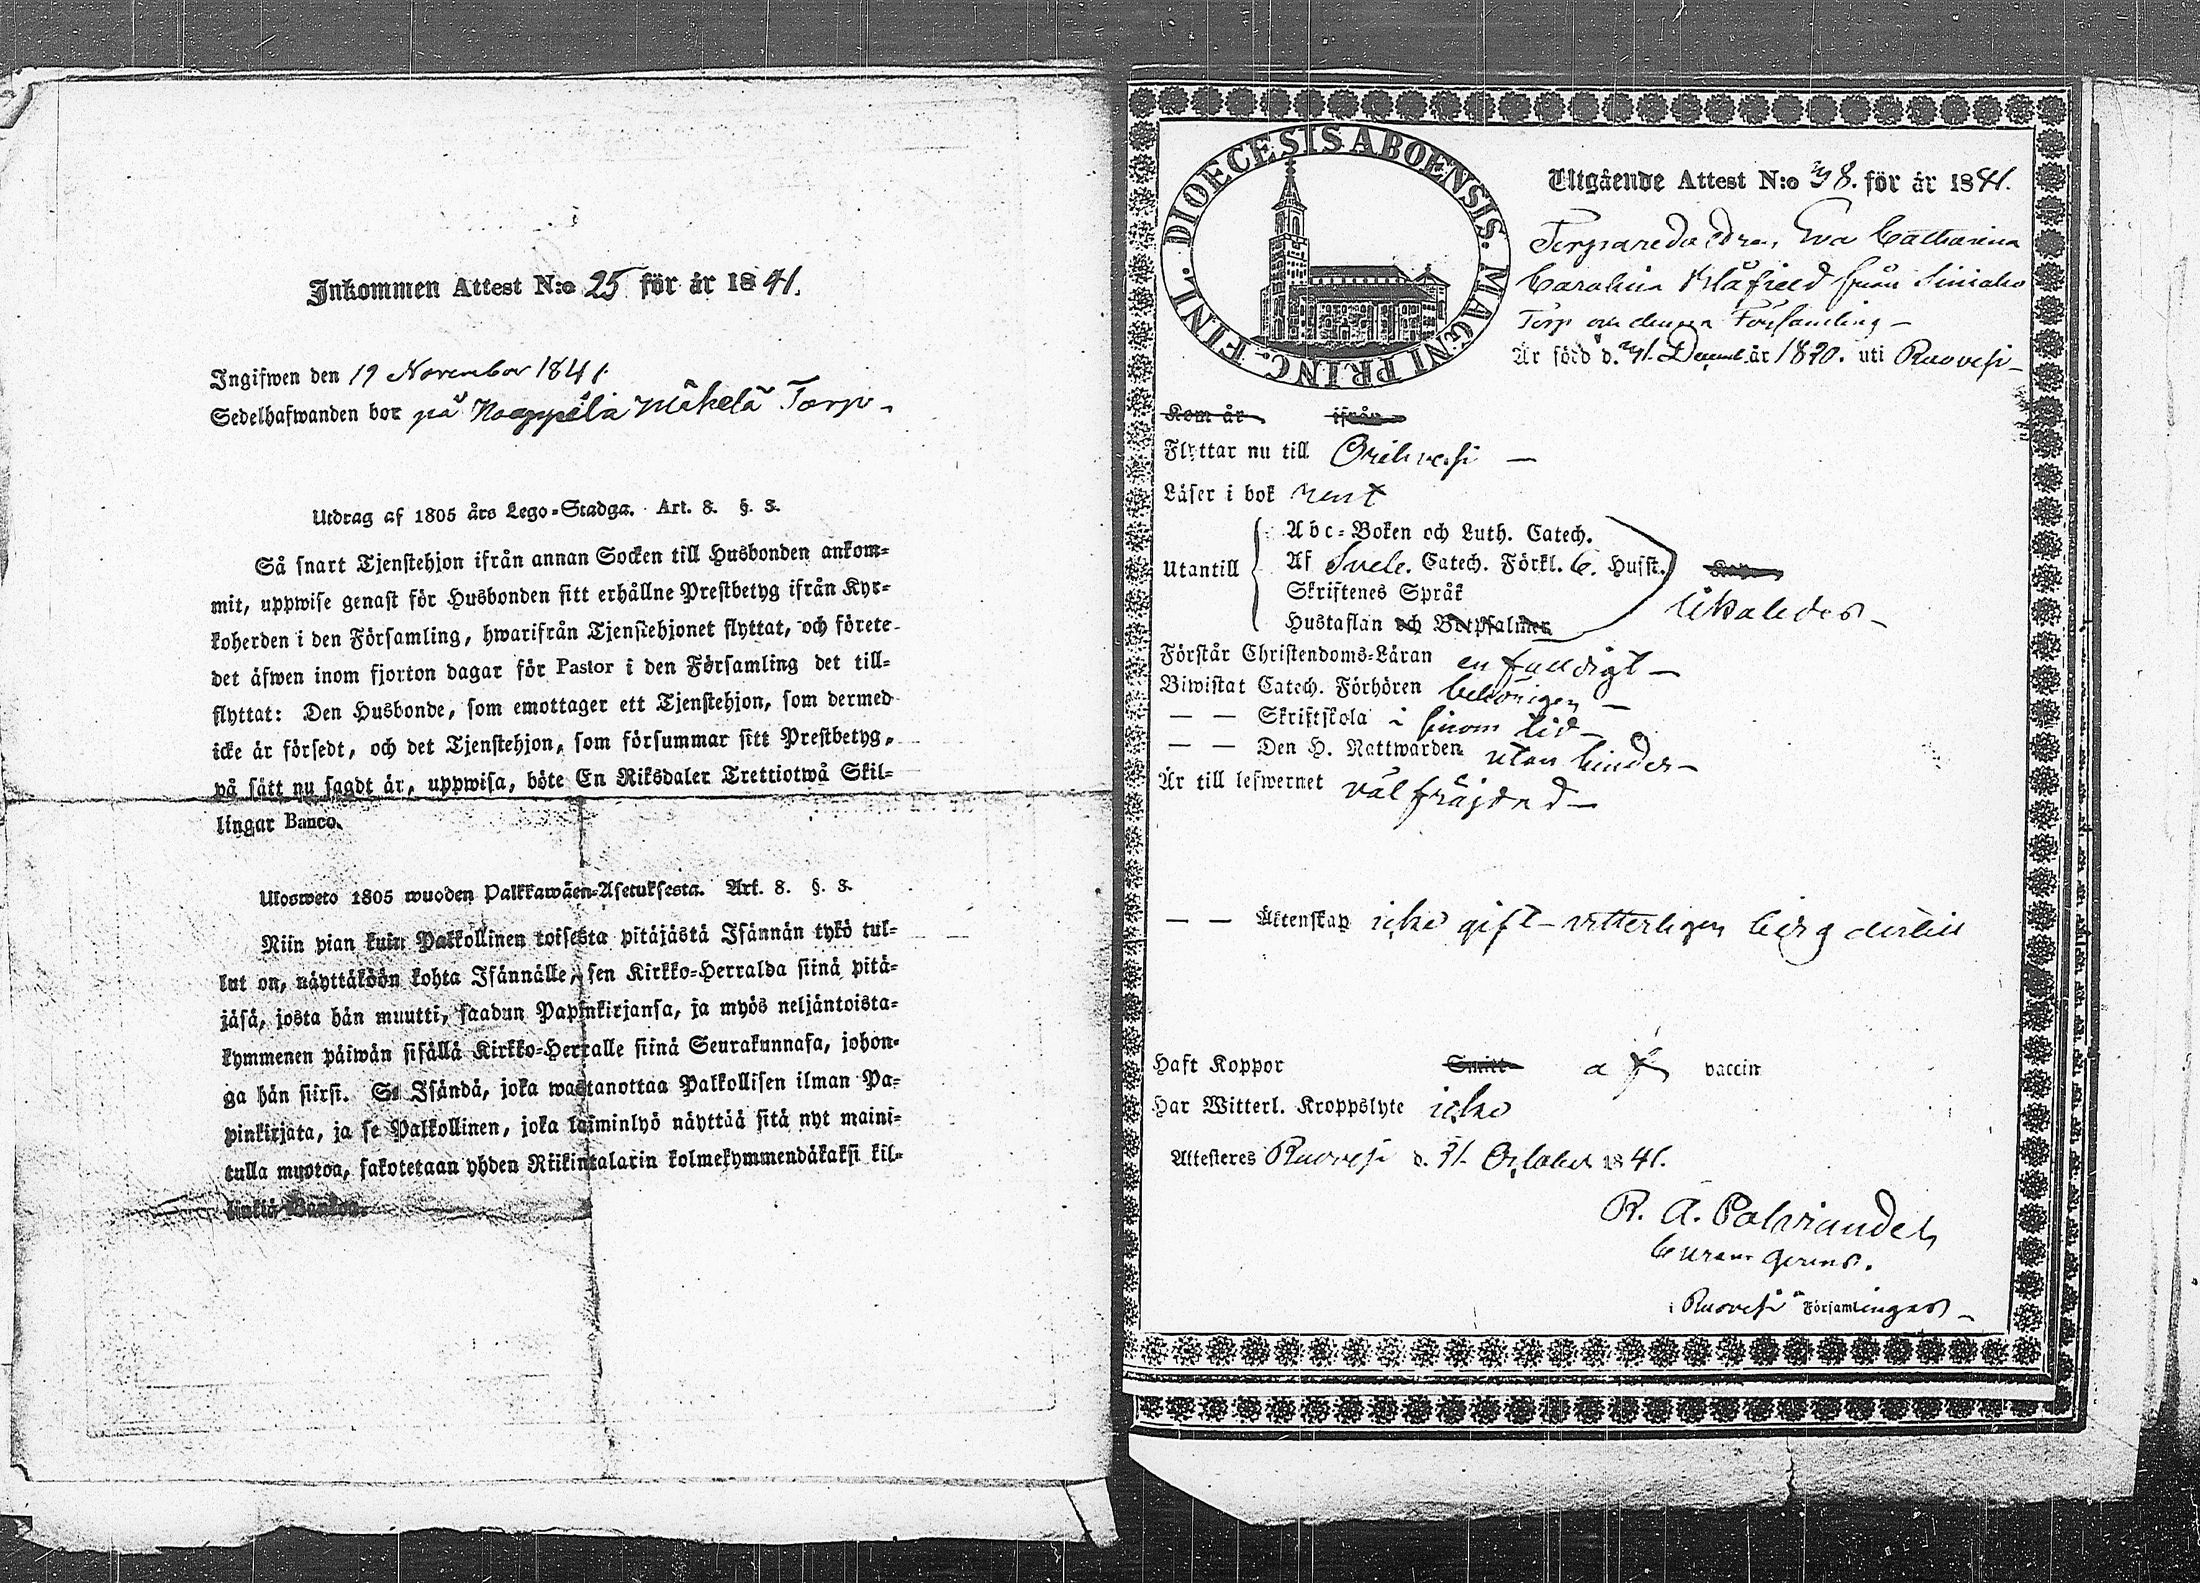 Inkommen Attest N:o 25 för år 1841.
Ingifwen den 19 November 1841.
Sedelhafwanden bor på Mäkelä Torp.
Utdrag af 1805 års Lego-Stadga. Art. 8. §. 3.
Så snart Tjenstehjon ifrån annan Socken till Husbonden ankom-
mit, uppwise genast för Husbonden sitt erhållne Prestbetyg ifrån Kyr-
koherden i den Församling, hwarifrån Tjenstehjonet flyttat, och förete
det äfwen inom fjorton dagar för Pastor i den Församling det till-
flyttat: Den Husbonde, som emottager ett Tjenstehjon, som dermed
icke är försedt, och det Tjenstehjon, som försummar sitt Prestbetyg,
på sätt nu sagdt är, uppwisa, böte En Riksdaler Trettiotwå Skil-
lingar Banco.
Ulosweto 1805 wuoden Palkkawäen-Asetuksesta. Art. 8. §. 3.
Niin pian kuin Palkollinen toisesta pitäjästä Isännän tykö tul-
lut on, näyttäköön kohta Isännälle, sen Kirkko-Herralda siinä pitä-
jäsä, josta hän muutti, saadun Papinkirjansa, ja myös neljäntoista-
kymmenen päiwän sisällä Kirkko-Herralle siinä Seurakunnasa, johon-
ga hän siirsi. Se Isändä, joka wastanottaa Palkollisen ilman Pa-
pinkirjata, ja se Palkollinen, joka laiminlyö näyttää sitä nyt maini-
tulla muotoa, sakotetaan yhden Riikintalarin kolmekymmendäkaksi kil-
linkiä Bankoa.
DIOECESIS ABOENSIS. MAGNI PRINC. FINL.
Utgående Attest N:o 38. för år 1841.
Eva Catharina
Carolina Blåfield från
Torp Församling
Är född d. 31. Decemb. år 1820. uti Ruovesi
Kom år ifrån
Flyttar nu till Orihvesi
Läser i bok rent
Utantill
Abc-Boken och Luth. Catech.
Af Svebe. Catech. Förkl. C. Husst.
Skriftenes Språk
Hustaflan och Botpsalmer
likaledes
Förstår Christendoms-Läran enfaldigt
Biwistat Catech. Förhören behörigen
— — Skriftskola i sinom tid
— — Den H. Nattwarden utan hinder
Är till lefwernet väl fräjdad
— — Äktenskap icke gift - vitterligen ledig dertill
Haft Koppor vaccin
Har Witterl. Kroppslyte icke
Attesteres Ruovesi d. 31. October 1841.
R. A. Palviandet
Curam gerens.
i Ruovesi Församlingar